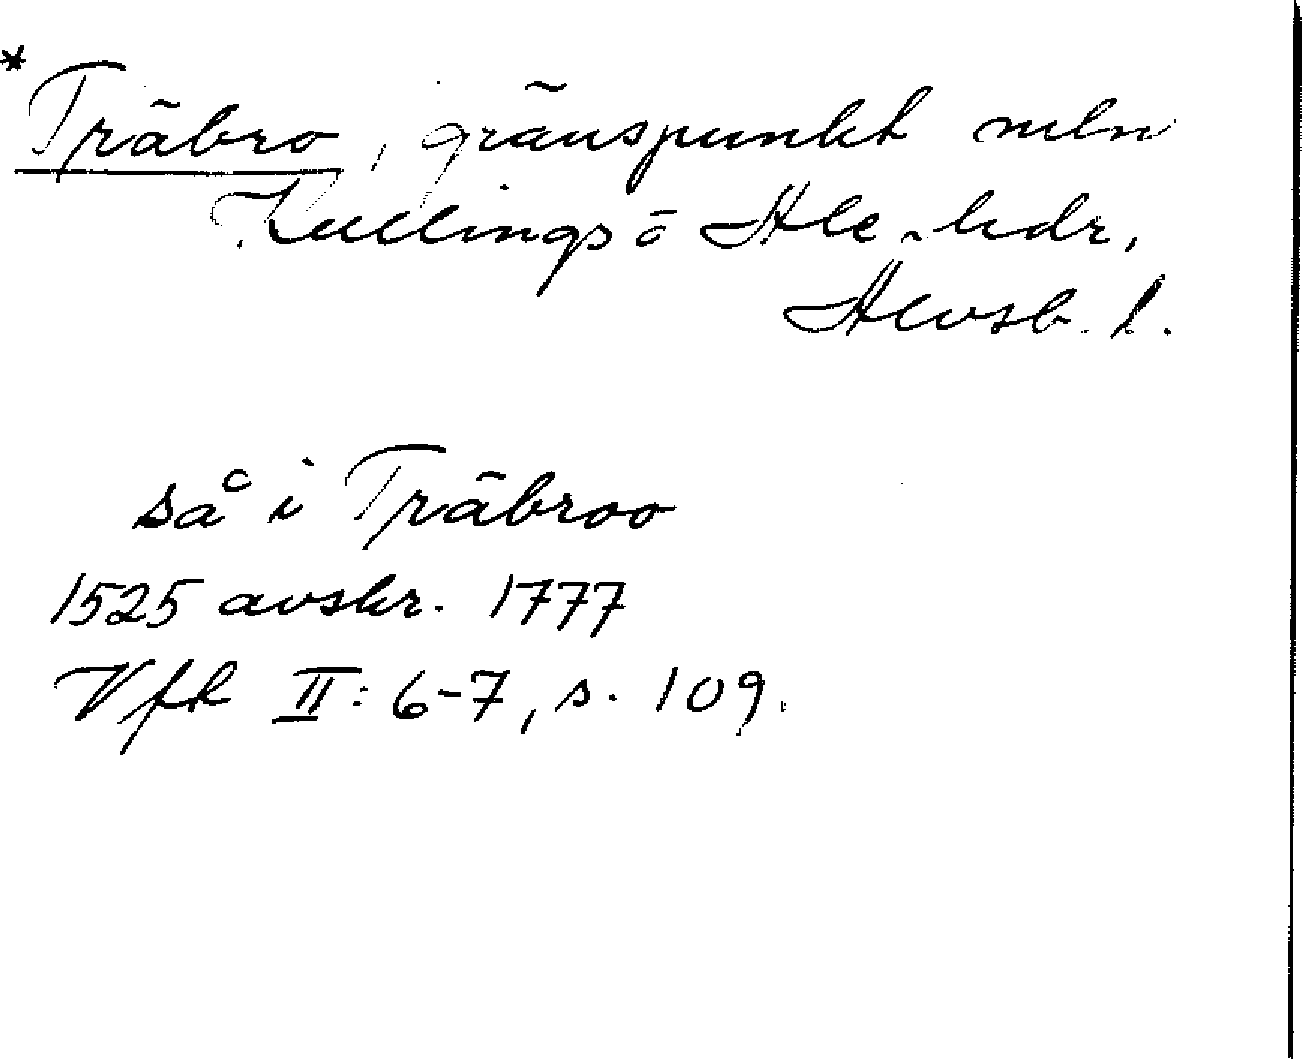 *Träbro, gränspunkt mln
Kullings o Ale hdr,
Älvsb. l.
så i Träbroo
1525 avskr. 1777
Vfk II: 6-7, s. 109.